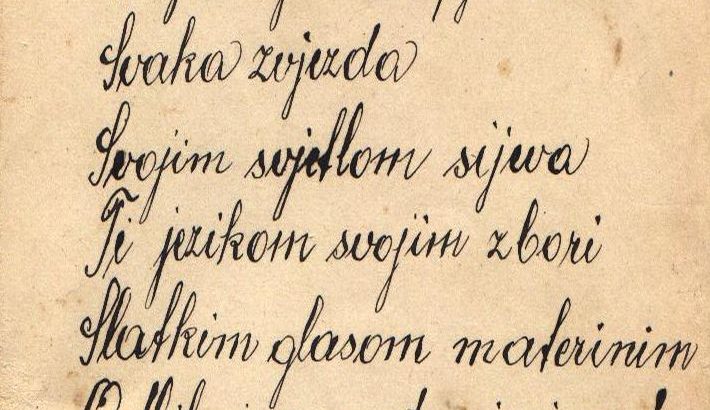 Svaka zvjezda
Svojim svjetlom sijeva
Ti jezikom svojim zbori
Slatkim glasom materinim